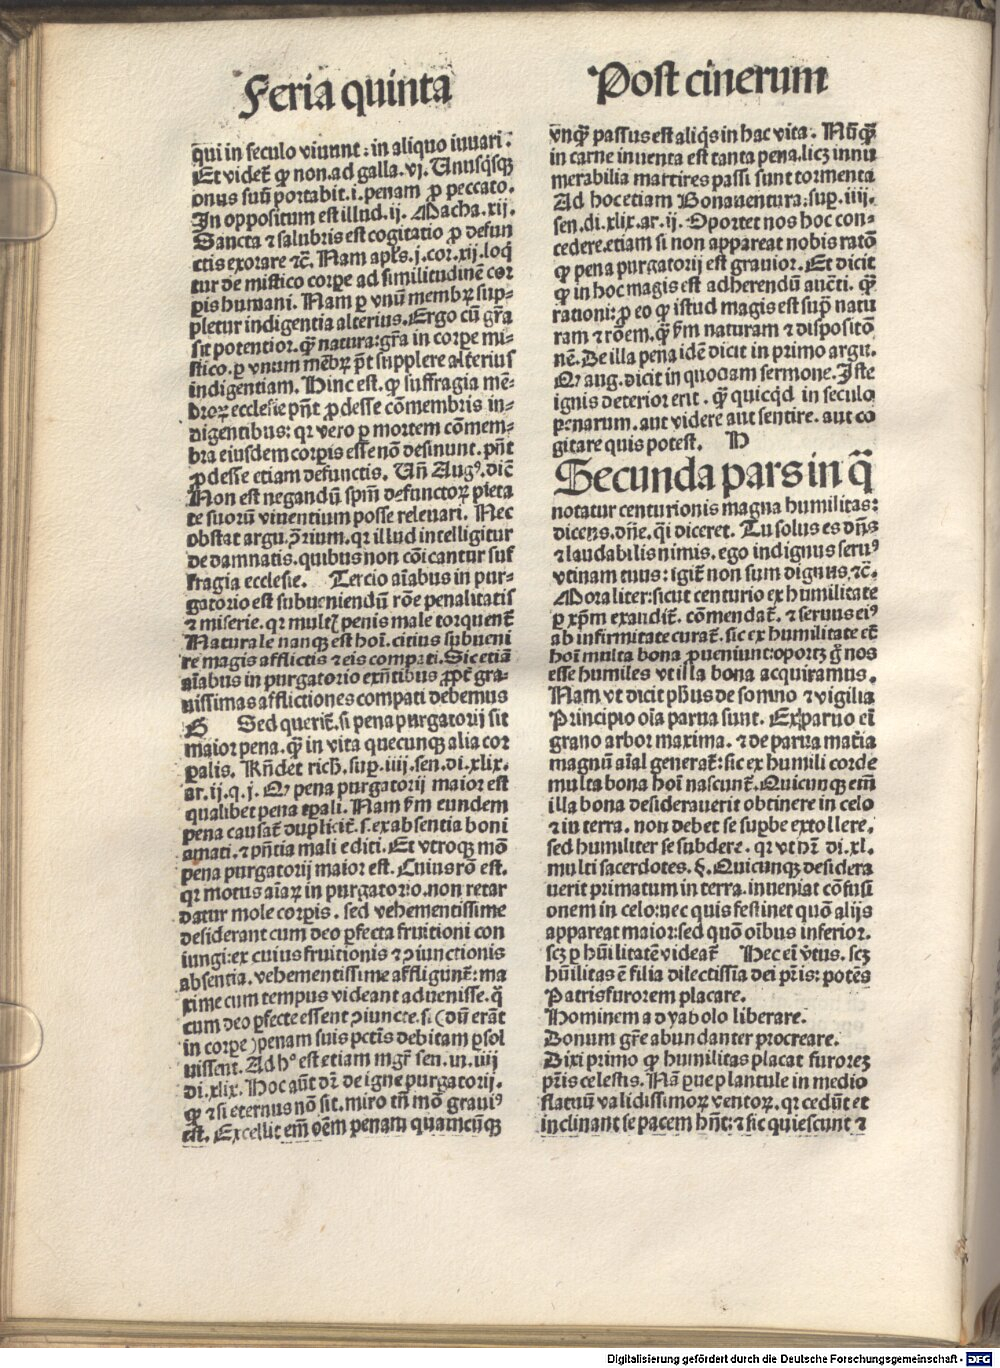 Feria quinta
Post cinerum
qui in seculo viuunt: in aliquo iuuari.
Et videt᷑ ꝙ non. ad galla. vj. Vnusq̇sqꝫ
onus suū portabit. i. penam ꝓ peccato.
In oppositum est illud. ij. Macha. xij.
Sancta ⁊ salubris est cogitatio ꝓ defun
ctis exorare ⁊c̄. Nam apl̄s. j. cor. xij. loq̄
tur de mistico corꝑe ad similitudinē cor
ꝑis humani. Nam ꝑ vnū membꝝ sup⸗
pletur indigentia alterius. Ergo cū gr̄a
sit potentior. qꝫ̄ natura: gr̄a in corꝑe mi⸗
stico. ꝑ vnum mēbꝝ pn̄t supplere alterius
indigentiam. Hinc est. ꝙ suffragia mē⸗
broꝝ ecclesie pn̄t ꝓdesse cōmembris in⸗
digentibus: qꝛ vero ꝑ mortem cōmem⸗
bra eiusdem corꝑis esse nō desinunt. pn̄t
ꝓdesse etiam defunctis. Vn̄ Augꝰ. dic̄
Non est negandū spm̄ defunctoꝝ pieta
te suorū viuentium posse releuari. Nec
obstat argu. ꝯ̄rium. qꝛ illud intelligitur
de damnatis. quibus non cōicantur suf
fragia ecclesie. Tercio aīabus in pur⸗
gatorio est subueniendū rōe penalitatis
⁊ miserie. qꝛ multꝭ penis male torquent᷑
Naturale nanqꝫ est hoī. citius subueni
re magis afflictis ⁊ eis compati. Sic etiā
aīabus in purgatorio exn̄tibus ꝓpt̄ gra⸗
uissimas afflictiones compati debemus
G Sed querit᷑. si pena purgatorij sit
maior pena. qꝫ̄ in vita quecunqꝫ alia cor
ꝑalis. Rn̄det rich̄. suꝑ. iiij. sen. di. xlix.
ar. ij. q. j. Qꝛ pena purgatorij maior est
qualibet pena tꝑali. Nam ẜm eundem
pena causat᷑ duplicit᷑. s. ex absentia boni
amati. ⁊ pn̄tia mali editi. Et vtroqꝫ mō
pena purgatorij maior est. Cuius rō est.
qꝛ motus aīaꝝ in purgatorio. non retar
datur mole corꝑis. sed vehementissime
desiderant cum deo ꝑfecta fruitioni con
iungi: ex cuius fruitionis ⁊ ꝯiunctionis
absentia. vehementissime affligunt᷑: ma
xime cum tempus videant aduenisse. q̄
cum deo ꝑfecte essent ꝯiuncte. si (dū erāt
in corꝑe) penam suis pctīs debitam ꝑsol
uissent. Ad hº est etiam mgr̄ sen. in. iiij
di. xlix. Hoc aūt dr̄ de igne purgatorij.
ꝙ ⁊ si eternus nō sit. miro tn̄ mō grauiꝰ
est. Excellit em̄ oēm penam quamcūqꝫ
vnqꝫ̄ passus est aliq̇s in hac vita. Nūqꝫ̄
in carne inuenta est tanta pena. licꝫ innu
merabilia martires passi sunt tormenta
Ad hoc etiam Bonauentura: suꝑ. iiij.
sen. di. xlix. ar. ij. Oportet nos hoc con⸗
cedere. etiam si non appareat nobis ratō
ꝙ pena purgatorij est grauior. Et dicit
ꝙ in hoc magis est adherendū auct̄i. qꝫ̄
rationi: ꝓ eo ꝙ istud magis est supͣ natu
ram ⁊ rōem. qꝫ̄ ẜm naturam ⁊ dispositō
nē. De illa pena idē dicit in primo argu.
Qꝛ aug. dicit in quodam sermone. Iste
ignis deterior erit. qꝫ̄ quicq̇d in seculo
penarum. aut videre aut sentire. aut co
gitare quis potest. H
Secunda pars in q̄
notatur centurionis magna humilitas:
dicens. dn̄e. q̇i diceret. Tu solus es dn̄s
⁊ laudabilis nimis. ego indignus seruꝰ
vtinam tuus: igit᷑ non sum dignus. ⁊c̄.
Moraliter: sicut centurio ex humilitate
ꝑ xp̄m exaudit᷑. cōmendat᷑. ⁊ seruus eiꝰ
ab infirmitate curat᷑. sic ex humilitate et̄
hoī multa bona ꝓueniunt: oportꝫ g̊ nos
esse humiles vt illa bona acquiramus.
Nam vt dicit ph̄us de somno ⁊ vigilia
Principio oīa parua sunt. Ex paruo ei̅
grano arbor maxima. ⁊ de parua mat̄ia
magnū aīal generat᷑: sic ex humili corde
multa bona hoī nascunt᷑. Quicunqꝫ em̄
illa bona desiderauerit obtinere in celo
⁊ in terra. non debet se suꝑbe extollere.
sed humiliter se subdere. qꝛ vt hr̄ di. xl.
multi sacerdotes. §. Quicunqꝫ desidera
uerit primatum in terra. inueniat cōfusi
onem in celo: nec quis festinet quō alijs
appareat maior: sed quō oībus inferior.
scꝫ ꝑ hūilitatē videat᷑ Hec ei̅ v̄tus. scꝫ
hūilitas ē filia dilectissīa dei pr̄is: potēs
Patris furorem placare.
Hominem a dyabolo liberare.
Bonum gr̄e abundanter procreare.
Dixi primo ꝙ humilitas placat furoreꝫ
pr̄is celestis. Nā ꝓue plantule in medio
flatuū validissimoꝝ ventoꝝ. qꝛ cedūt et
inclinant se pacem hn̄t: ⁊ sic quiescunt ⁊
Digitalisierung gefördert durch die Deutsche Forschungsgemeinschaft - DFG